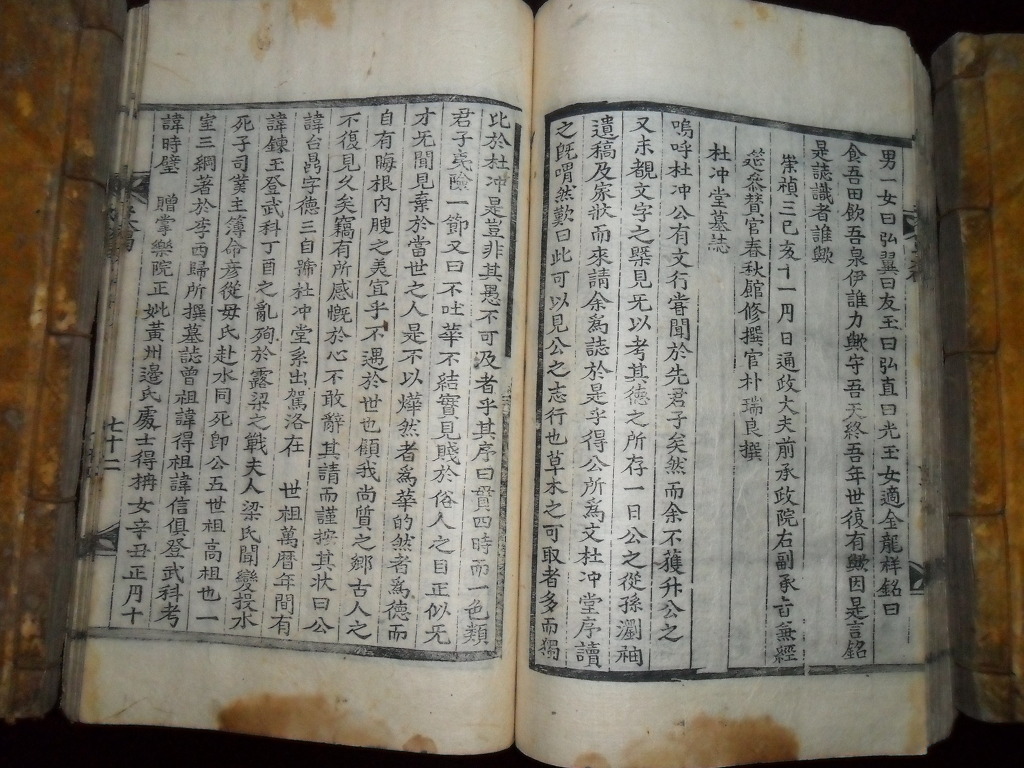 男一女曰弘翼曰友玉曰弘直曰光玉女適金龍祥銘曰
食吾田飮吾泉伊誰力歟守吾天終吾年世復有歟因是言銘
是誌識者誰歟
崇禎三己亥十一月日通政大夫前承政院右副承旨兼經
筵叅賛官春秋館修撰官朴瑞良撰
杜冲堂墓誌
嗚呼杜冲公有文行甞聞於先君子矣然而余不獲升公之
又未覩文字之槩見旡以考其德之所存一日公之從孫瀏袖
遺稿及家狀而來請余爲誌於是乎得公所爲文杜冲堂序讀
之旣喟然歎曰此可以見公之志行也草木之可取者多而獨
比於杜冲是豈非其愚不可及者乎其序曰貫四時而一色類
君子夷險一節又曰不吐華不結實見賤於俗人之目正似旡
才旡聞見棄於當世之人是不以燁然者爲華的然者爲德而
自有晦根內腴之美宜乎不遇於世也顧我尚質之鄕古人之
不復見久矣竊有所感慨於心不敢辭其請而謹按其狀曰公
諱台昌字德三自號杜冲堂系出駕洛在 世祖萬曆年間有
諱鍊玉登武科丁酉之亂殉於露梁之戰夫人梁氏聞變投水
死子司業主簿命彦從母氏赴水同死卽公五世祖高祖也一
室三綱著於李西歸所撰墓誌曾祖諱得祖諱信俱登武科考
諱時璧 贈掌樂院正妣黃州邊氏處士得枬女辛丑正月十
七十二